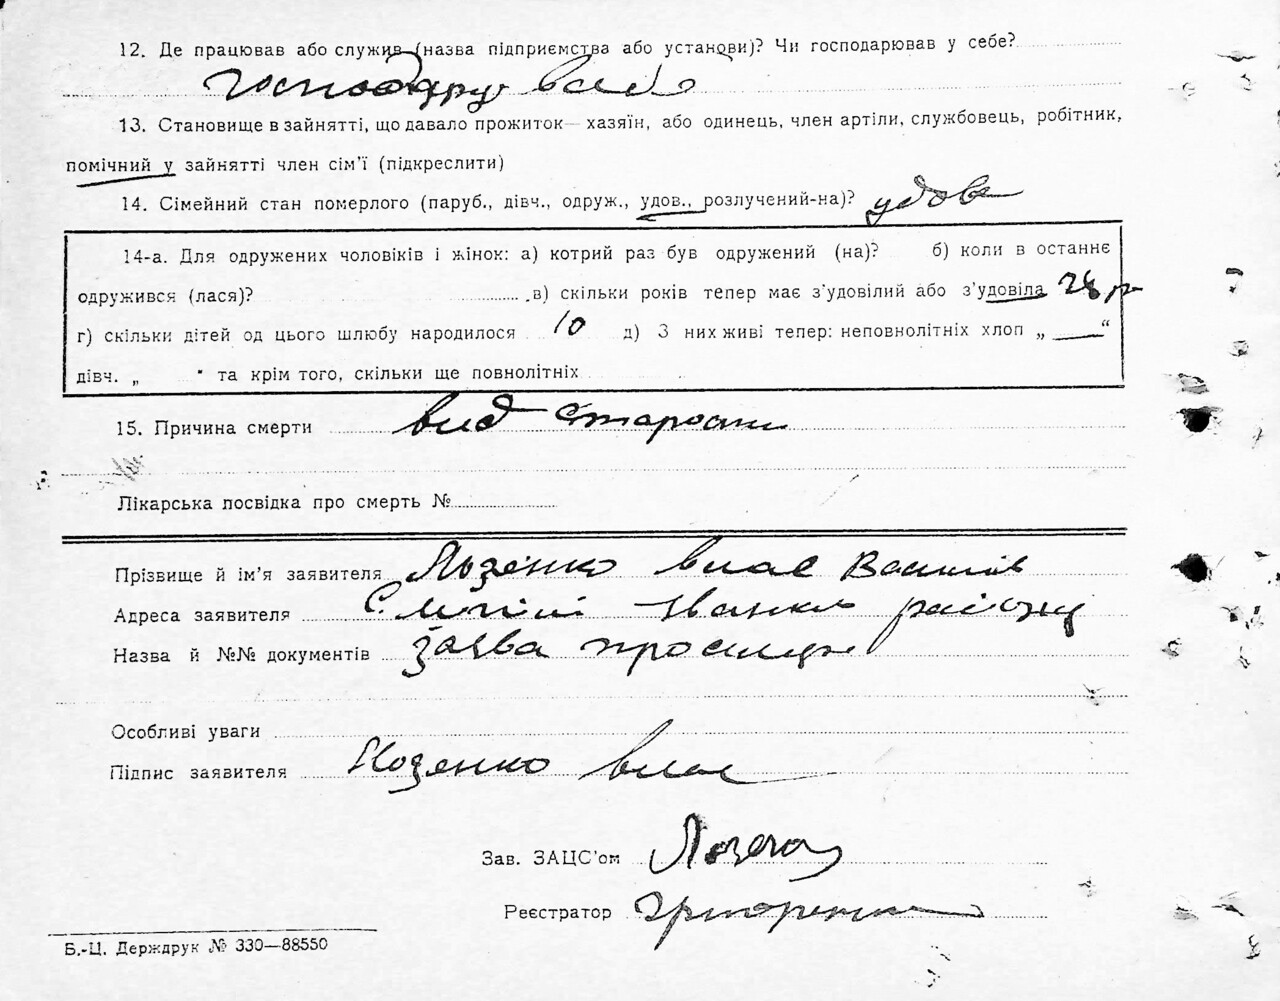 12. Де працював або служив (назва підприємства або установи)? Чи господарював у себе?
господарує в себе
13. Становище в зайнятті, що давало прожиток — хазяїн, або одинець, член артіли, службовець, робітник,
помічний у зайнятті член сім'ї (підкреслити)
14. Сімейний стан померлого (паруб., дівч., одруж., удов., розлучений-на)? удова
14-а. Для одружених чоловіків і жінок: а) котрий раз був одружений (на)? б) коли в останнє
одружився (лася)? в) скільки років тепер має з'удовілий або з'удовіла 28 р
г) скільки дітей од цього шлюбу народилося 10 д) З них живі тепер: неповнолітніх хлоп „ — “
дівч. „ " та крім того, скільки ще повнолітніх
15. Причина смерти вид старости
Лікарська посвідка про смерть №
Прізвище й ім'я заявителя Влас
Адреса заявителя С. району
Назва й №№ документів заява
Особливі уваги
Підпис заявителя Влас
Зав. ЗАЦС'ом
Реєстратор Григоренко
Б.-Ц. Держдрук № 330—88550